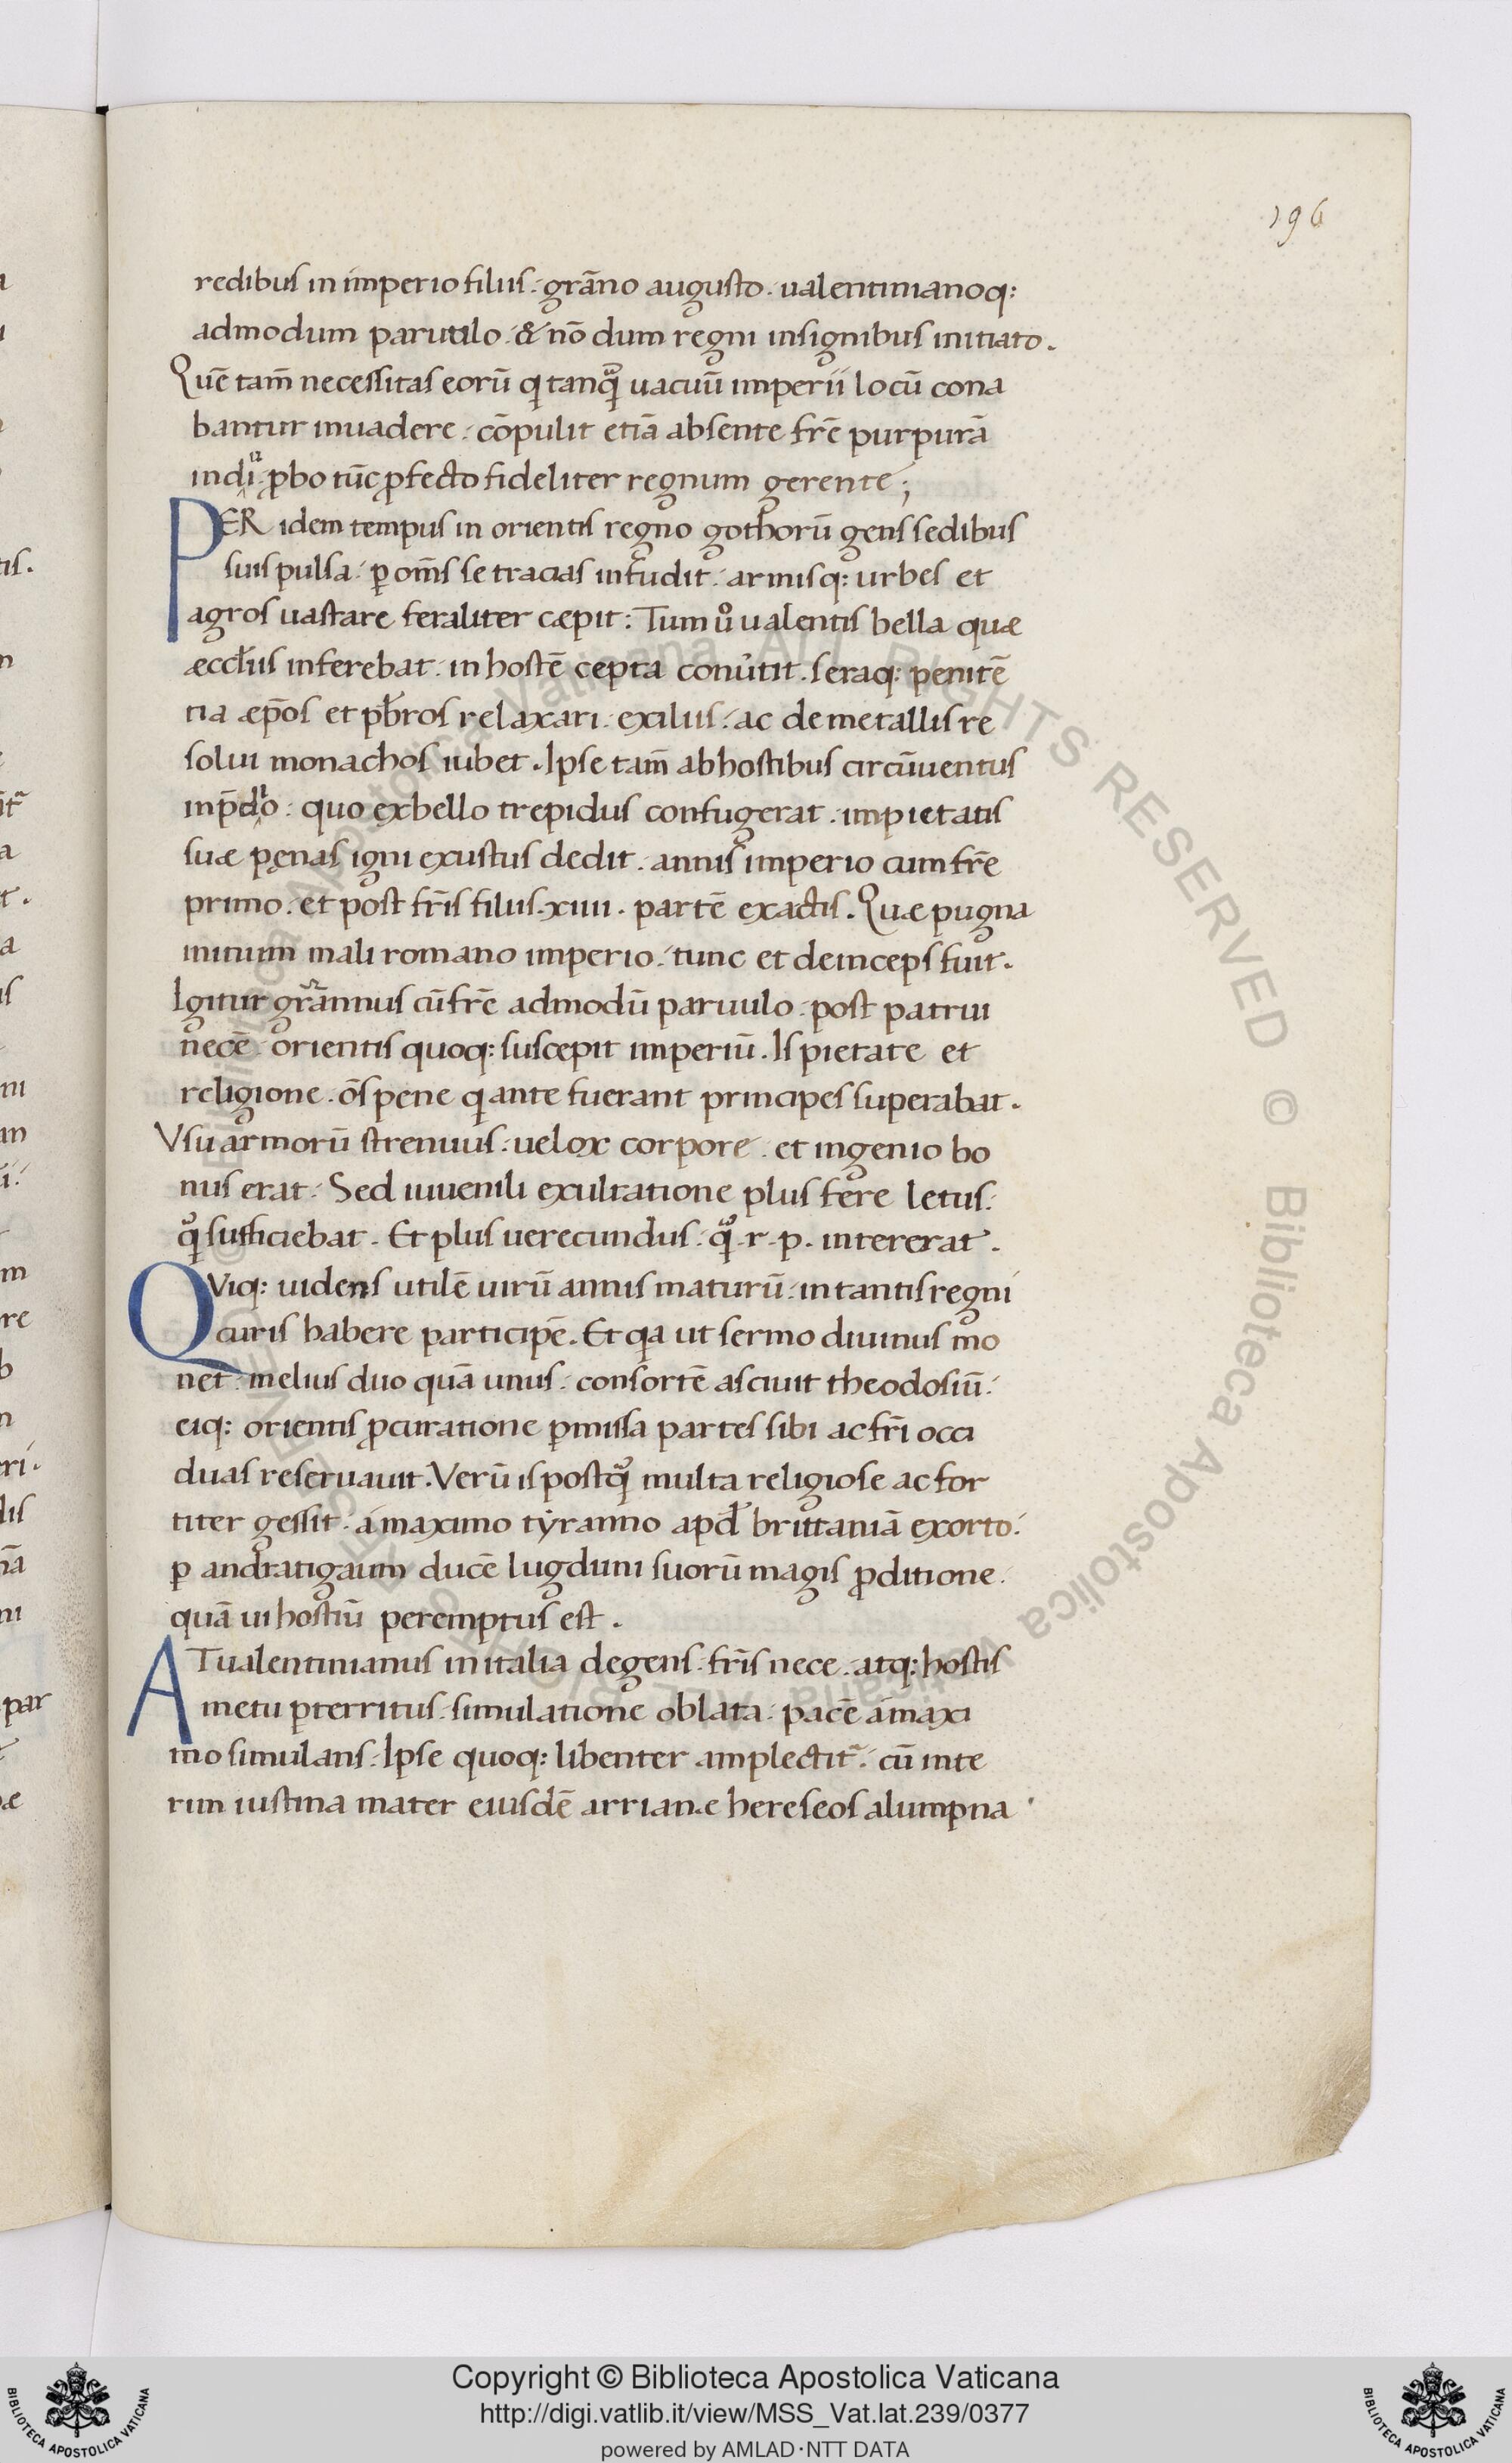 196
redibus in imperio filiis. grãno augusto. ualentinianoq:
admodum paruulo. & nõ dum regni insignibus initiato.
Quẽ tam̃ necessitas eorũ qi tanqͣ uacuũ imperii locũ cona
bantur inuadere. cõpulit etiã absente fr̃e purpurã
indi. ꝓbo tũc ꝓfecto fideliter regnum gerente;
PER idem tempus in orientis regno gothorũ gens sedibus
suis pulsa. ꝑ om̃s se tracias infudit. armisq: urbes et
agros uastare feraliter cæpit: Tum uͦ ualentis bella quæ
æccƚiis inferebat. in hostẽ cepta conũtit. seraq: penitẽ
tia æp̃os et pƀros relaxari. exiliis. ac de metallis re
solui monachos iubet. Ipse tam̃ ab hostibus circũuentus
in p̃dio. quo ex bello trepidus confugerat. impietatis
suæ pęnas igni exustus dedit. annis imperio cum fr̃e
primo. et post fr̃is filiis. xiiii. partẽ exactis. Quæ pugna
initium mali romano imperio. tunc et deinceps fuit.
Igitur gr̃annus cũ fr̃e admodũ paruulo. post patrui
necẽ. orientis quoq: suscepit imperiũ. Is pietate et
religione. õs pene qi ante fuerant principes superabat.
Vsu armorũ strenuus. uelox corpore. et ingenio bo
nus erat. Sed iuuenili exultatione plus fere letus.
qͣ sufficiebat. Et plus uerecundus. qͣ. r. p. intererat.
QViq: uidens utilẽ uirũ annis maturũ. in tantis regni
curis habere participẽ. Et qa ut sermo diuinus mo
net. melius duo quã unus. consortẽ asciuit theodosiũ.
eiq: orientis ꝓcuratione ꝑmissa partes sibi ac fr̃i occi
duas reseruauit. Verũ is postqͣ multa religiose ac for
titer gessit. á maximo tẏranno apđ brittaniã exorto.
ꝑ andratigaum ducẽ lugduni suorũ magis ꝓditione.
quã ui hostiũ peremptus est.
ATualentinianus in italia degens. fr̃is nece. atq: hostis
metu ꝑterritus. simulatione oblata. pacẽ á maxi
mo simulans. Ipse quoq: libenter amplectit̃. cũ inte
rim iustina mater eiusdẽ arrianæ hereseos alumpna
Copyright © Biblioteca Apostolica Vaticana
http://digi.vatlib.it/view/MSS_Vat.lat.239/0377
powered by AMLAD·NTT DATA
BIBLIOTECA APOSTOLICA VATICANA
BIBLIOTECA APOSTOLICA VATICANA